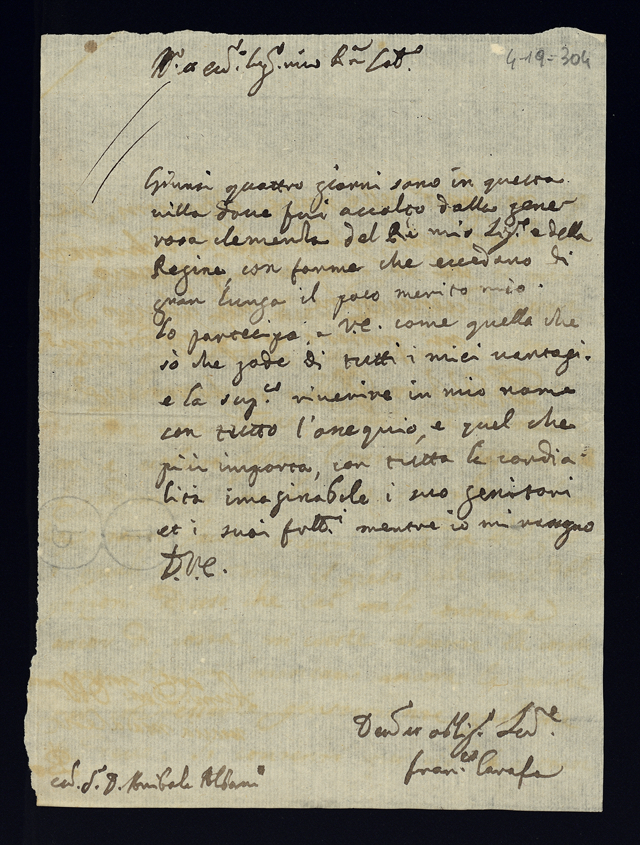 4-19-304
Giunsi quattro giorni sono in questa
villa dove fui accolto dalla gene
rosa clemenza del Re mio Sig.e e della
Regina, con forme che eccedano di
gran lunga il poco merito mio.
lo partecipo a V.E. come quella che
sò che gode di tutti i miei vantagi.
e la sup.co riverire in mio nome
con tutto l'ossequio, e quel che
più importa, con tutta la cordia
lità imaginabile i suoi genitori
et i suoi frlli mentre io mi rasegno
D.V.E.
Dev.mo obblig.
fran.co Carafa
D. Annibale Albani